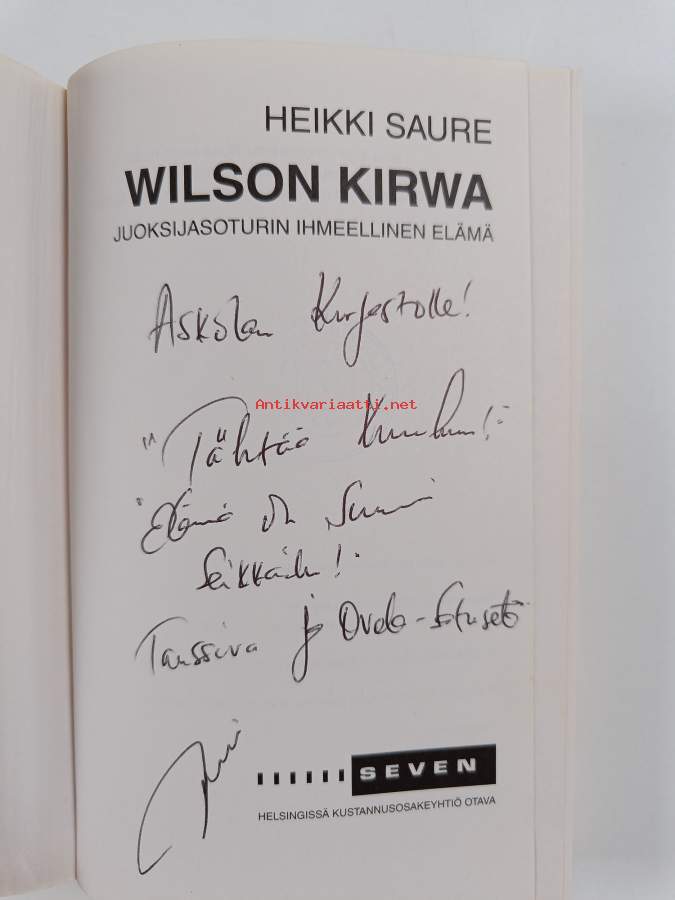 HEIKKI SAURE
WILSON KIRWA
JUOKSIJASOTURIN IHMEELLINEN ELÄMÄ
Askolan Kirjastolle!
Antikvariaatti.net
"Tähtää Kuuhun!"
"Elämä on Suuri
Seikkailu!"
Tanssiva ja
SEVEN
HELSINGISSÄ KUSTANNUSOSAKEYHTIÖ OTAVA